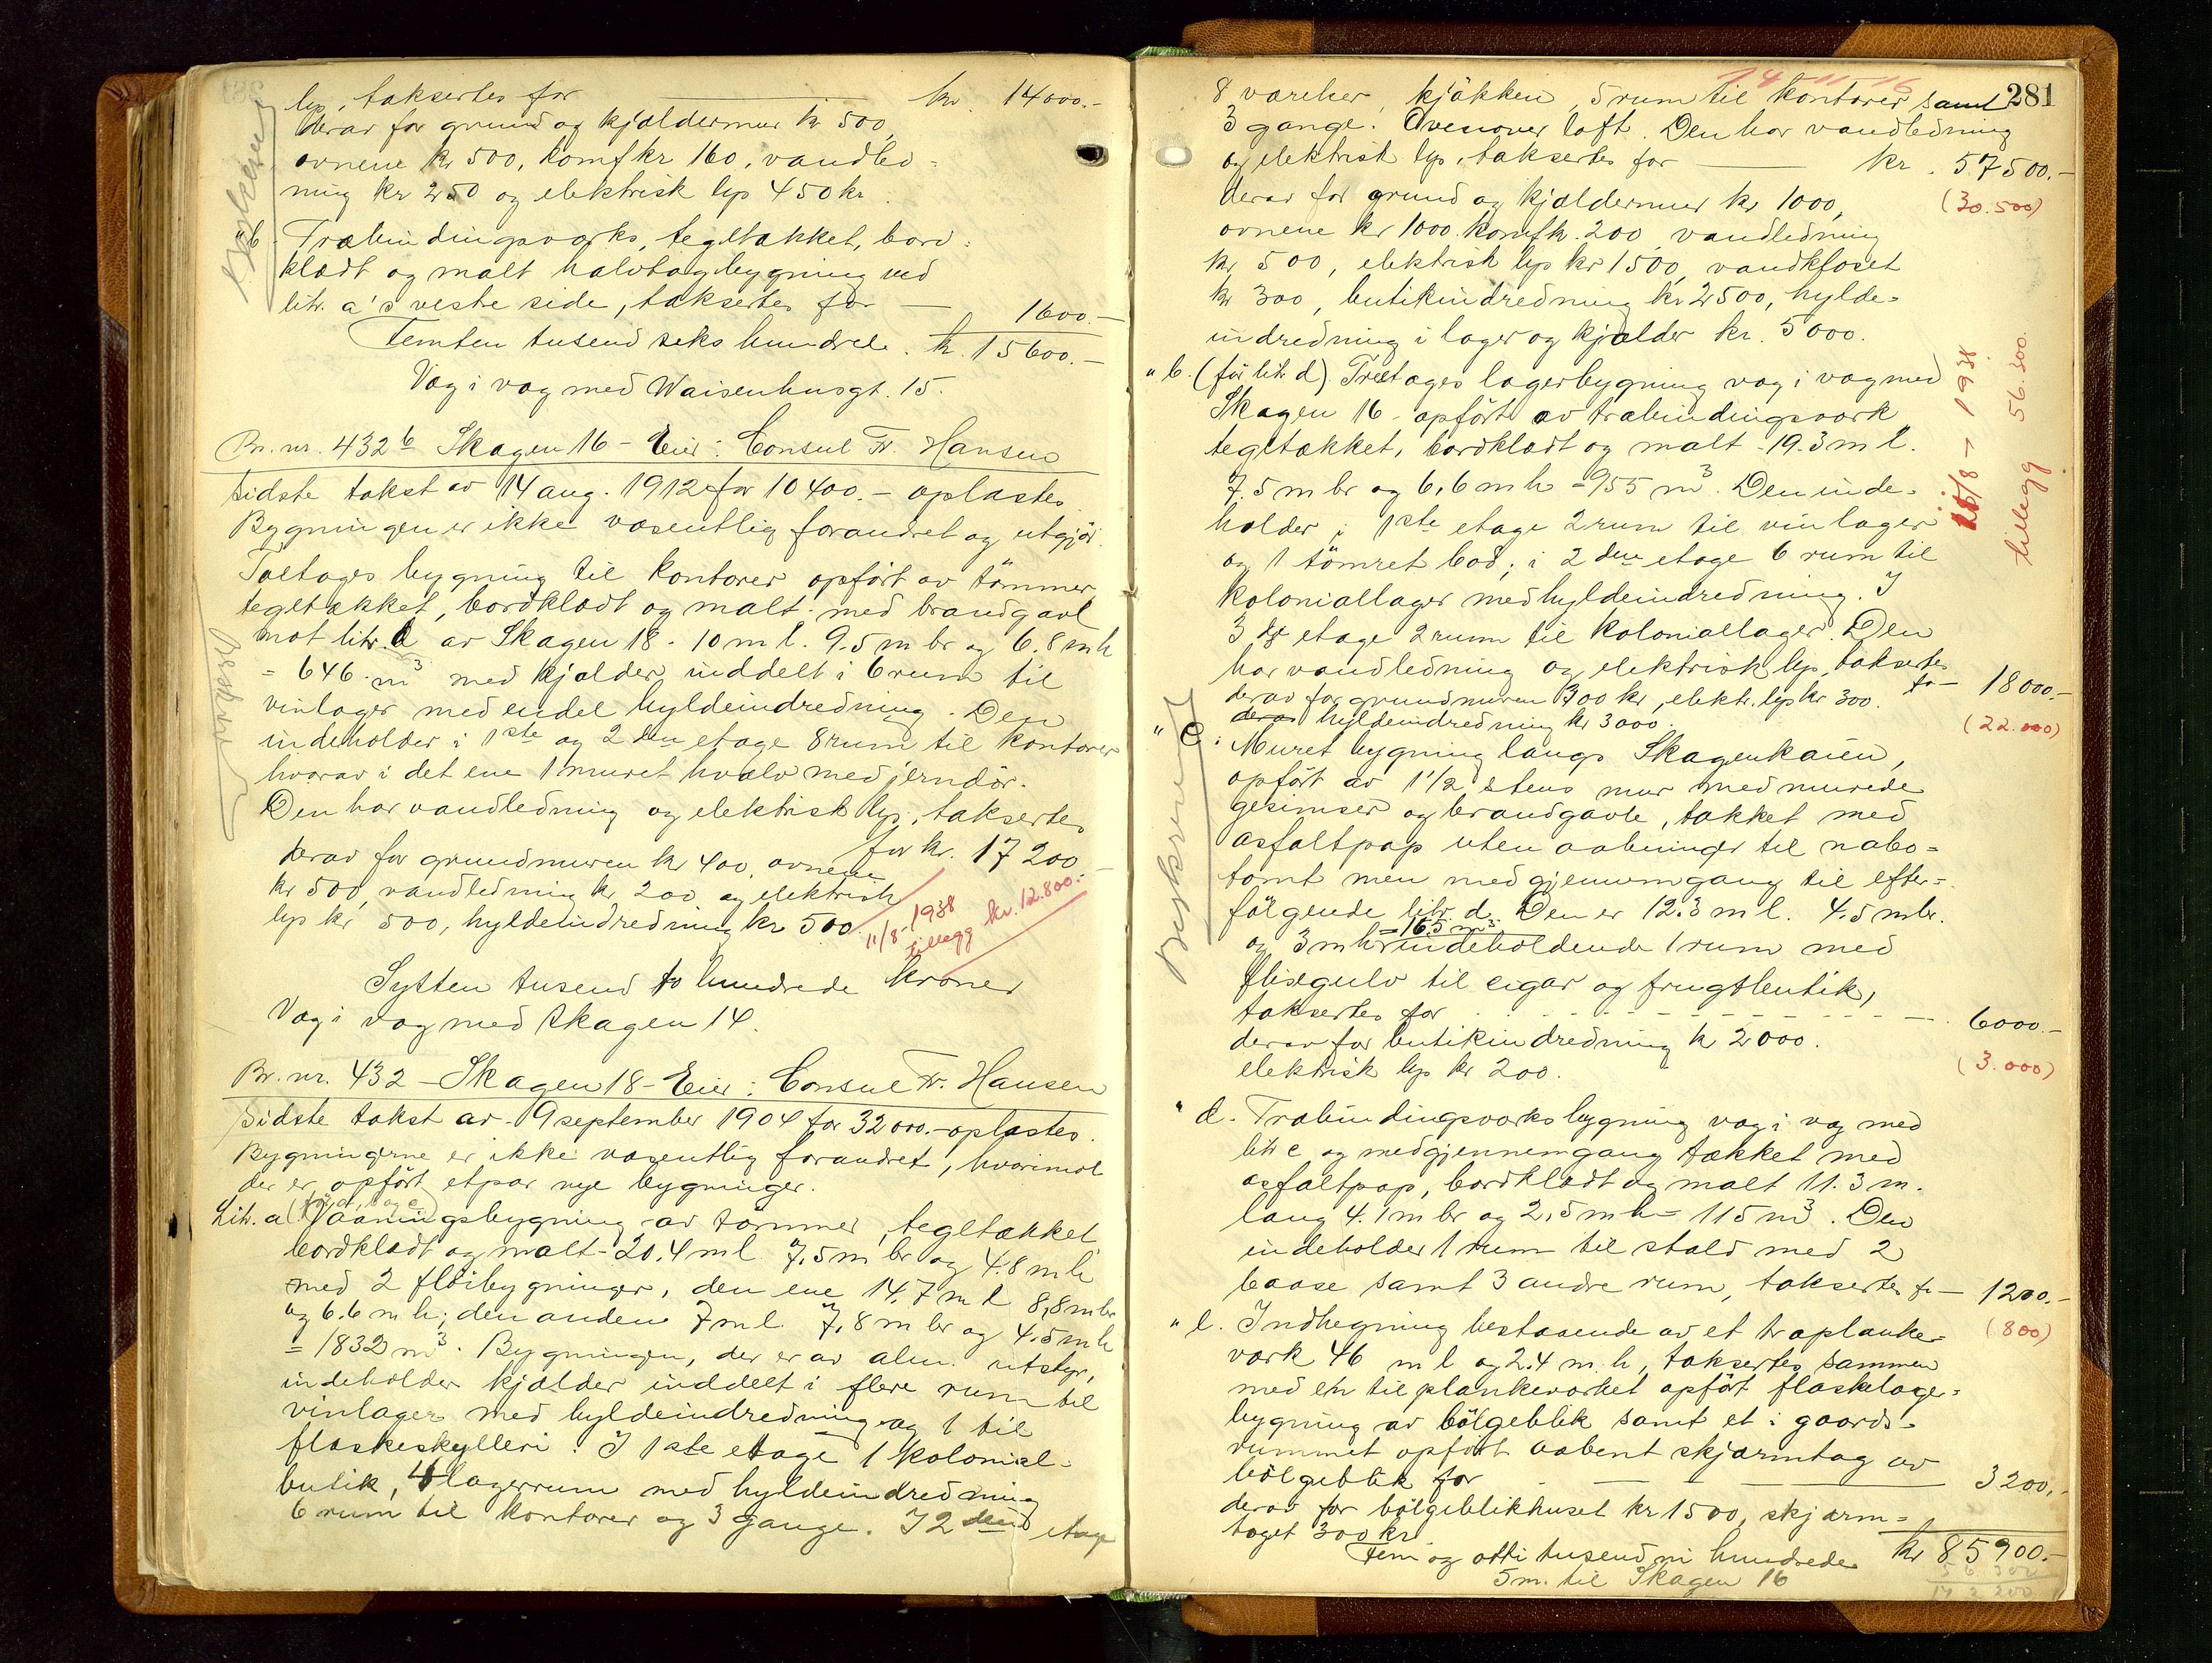 lys, taksertes for kr. 14000.-
derav for grund og kjældermur kr 500,
ovnene kr 500, komf kr 160, vandled=
ning kr 250 og elektrisk lys 450 kr.
"b. Træbindingsverks, tegltækket, bord=
klædt og malt halvtagbygning ved
litr. a's vestre side, taksertes for — 1600.-
Femten tusend seks hundrede. kr. 15600.-
Væg i væg med Waisenhusgt. 15.
Beskrevet
Br. nr. 432b Skagen 16 - Eier: Consul Fr. Hansen
Sidste takst av 14 aug. 1912 for 10400.- oplæstes
Bygningen er ikke væsentlig forandret og utgjör:
Toetages bygning til kontorer opfört av tömmer,
tegltækket, bordklædt og malt med brandgavl
mot litr. a av Skagen 18 - 10 m l. 9.5 m br og 6.8 m h
= 646 m3 med kjælder inddelt i 6 rum til
vinlager med endel hyldeindredning. Den
indeholder i 1ste og 2den etage 8 rum til kontorer
hvorav i det ene 1 muret hvælv med jerndör.
Den har vandledning og elektrisk lys, taksertes
for kr. 17200.-
derav for grundmuren kr 400, ovnene
kr 500, vandledning kr 200 og elektrisk
lys kr 500, hyldeindredning kr 500.
11/8-1938
tillegg kr. 12.800.-
Beskrevet
Sytten tusend to hundrede kroner
Væg i væg med Skagen 14.
Br. nr. 432 - Skagen 18 - Eier: Consul Fr. Hansen
Sidste takst av 9 september 1904 for 32000.- oplæstes.
Bygningerne er ikke væsentlig forandret, hvorimot
der er opfört etpar nye bygninger.
Litr. a (för a, b og c) Vaaningsbygning av tömmer, tegltækket,
bordklædt og malt - 20.4 m l. 7.5 m br og 4.8 m h
med 2 flöibygninger, den ene 14.7 m l 8,8 m br
og 6.6 m h; den anden 7 m l. 7,8 m br og 4.5 m h
= 1832 m3. Bygningen, der er av alm. utstyr,
indeholder kjælder inddelt i flere rum til
vinlager med hyldeindredning og 1 til
flaskeskylleri. I 1ste etage 1 kolonial-
butik, 4 lagerrum med hyldeindredning
6 rum til kontorer og 3 gange. I 2den etage
281
14-11-16
8 værelser, kjökken, 5 rum til kontorer samt
3 gange. Ovenover loft. Den har vandledning
og elektrisk lys, taksertes for — kr. 57500.-
(30.500)
derav for grund og kjældermur kr 1000,
ovnene kr 1000. komf kr. 200, vandledning
kr. 500, elektrisk lys kr 1500, vandkloset
kr 300, butikindredning kr 2500, hylde=
indredning i lager og kjælder kr. 5000.
" b. (för litr d) Treetages lagerbygning væg i væg med
Skagen 16 - opfört av træbindingsværk
tegltækket, bordklædt og malt - 19.3 m l.
7.5 m br og 6,6 m h = 955 m3. Den inde=
holder i 1ste etage 2 rum til vinlager
og 1 tömret bod; i 2den etage 6 rum til
koloniallager med hyldeindredning. I
3dje etage 2 rum til koloniallager. Den
har vandledning og elektrisk lys, taksertes
for — 18000.-
(22.000)
derav for grundmuren 300 kr, elektr. lys kr 300.
derav hyldeindredning kr 3000.
11/8 - 1938
tillegg 56.300.
" c. Muret bygning langs Skagenkaien,
opfört av 1 1/2 stens mur med murede
gesimser og brandgavle, tækket med
asfaltpap uten aabninger til nabo=
tomt men med gjennemgang til efter=
fölgende litr. d. Den er 12.3 m l. 4.5 m br.
og 3 m h = 165 m3 indeholdende 1 rum med
flisegulv til cigar og frugtbutik,
taksertes for 6000.-
(3.000)
derav for butikindredning kr 2000.
elektrisk lys kr 200.
Beskrevet
" d. Træbindingsverksbygning væg i væg med
litr c og med gjennemgang tækket med
asfaltpap, bordklædt og malt 11.3 m.
lang 4.1 m br og 2,5 m h = 115 m3. Den
indeholder 1 rum til stald med 2
baase samt 3 andre rum, taksertes for — 1200.-
(800)
" e. Indhegning bestaaende av et træplanke=
værk 46 m l og 2.4 m. h, taksertes sammen
med en til plankeverket opfört flaskelager=
bygning av bölgeblik samt et i gaards-
rummet opfört aabent skjærmtag av
bölgeblik for — 3200.-
derav for bölgeblikhuset kr 1500, skjærm=
taget 300 kr.
Fem og otti tusend ni hundrede kr 85900.-
5 m. til Skagen 16